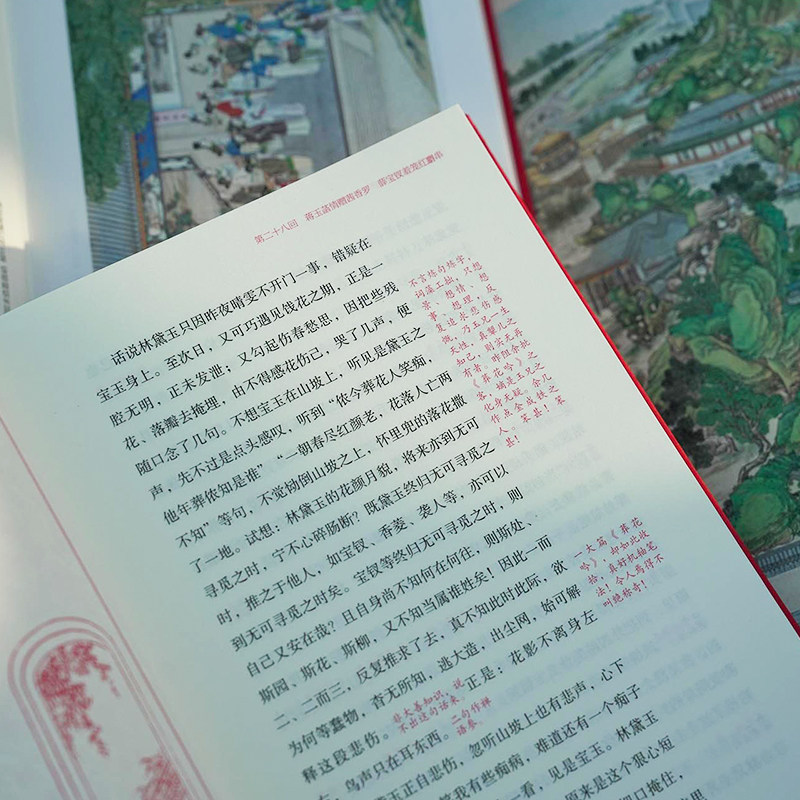 第二十八回 蒋玉菡情赠茜香罗 薛宝钗羞笼红麝串
话说林黛玉只因昨夜晴雯不开门一事，错疑在
宝玉身上。至次日，又可巧遇见饯花之期，正是一
腔无明，正未发泄；又勾起伤春愁思，因把些残
花、落瓣去掩埋，由不得感花伤己，哭了几声，便
随口念了几句。不想宝玉在山坡上，听见是黛玉之
声，先不过是点头感叹，听到“侬今葬花人笑痴，
他年葬侬知是谁”“一朝春尽红颜老，花落人亡两
不知”等句，不觉恸倒山坡之上，怀里兜的落花撒
了一地。试想：林黛玉的花颜月貌，将来亦到无可
寻觅之时，宁不心碎肠断？既黛玉终归无可寻觅之
时，推之于他人，如宝钗、香菱、袭人等，亦可以
到无可寻觅之时矣。宝钗等终归无可寻觅之时，则
自己又安在哉？且自身尚不知何在何往，则斯处、
斯园、斯花、斯柳，又不知当属谁姓矣！因此一而
二、二而三，反复推求了去，真不知此时此际，欲
为何等蠢物，杳无所知，逃大造，出尘网，始可解
释这段悲伤。
非大善知识，说
不出这句话来。
正是：花影不离身左
右，鸟声只在耳东西。
二句作禅
语参。
玉正自悲伤，忽听山坡上也有悲声，心下
笑我有些痴病，难道还有一个痴子
一看，见是宝玉。林黛玉
原来是这个狠心短
口掩住，
不言炼句炼字，
词藻工拙，只想
景、想情、想
事、想理，反
复追求悲伤感
慨，乃玉兄一生
天性。真颦儿之
知己，则实无再
有者。昨阻余批
《葬花吟》之
客，嫡是玉兄之
化身无疑。余几
作点金成铁之
人。笨甚！笨
甚！
一大篇《葬花
吟》，却如此收
拾，真好机轴笔
法！令人焉得不
叫绝称奇！